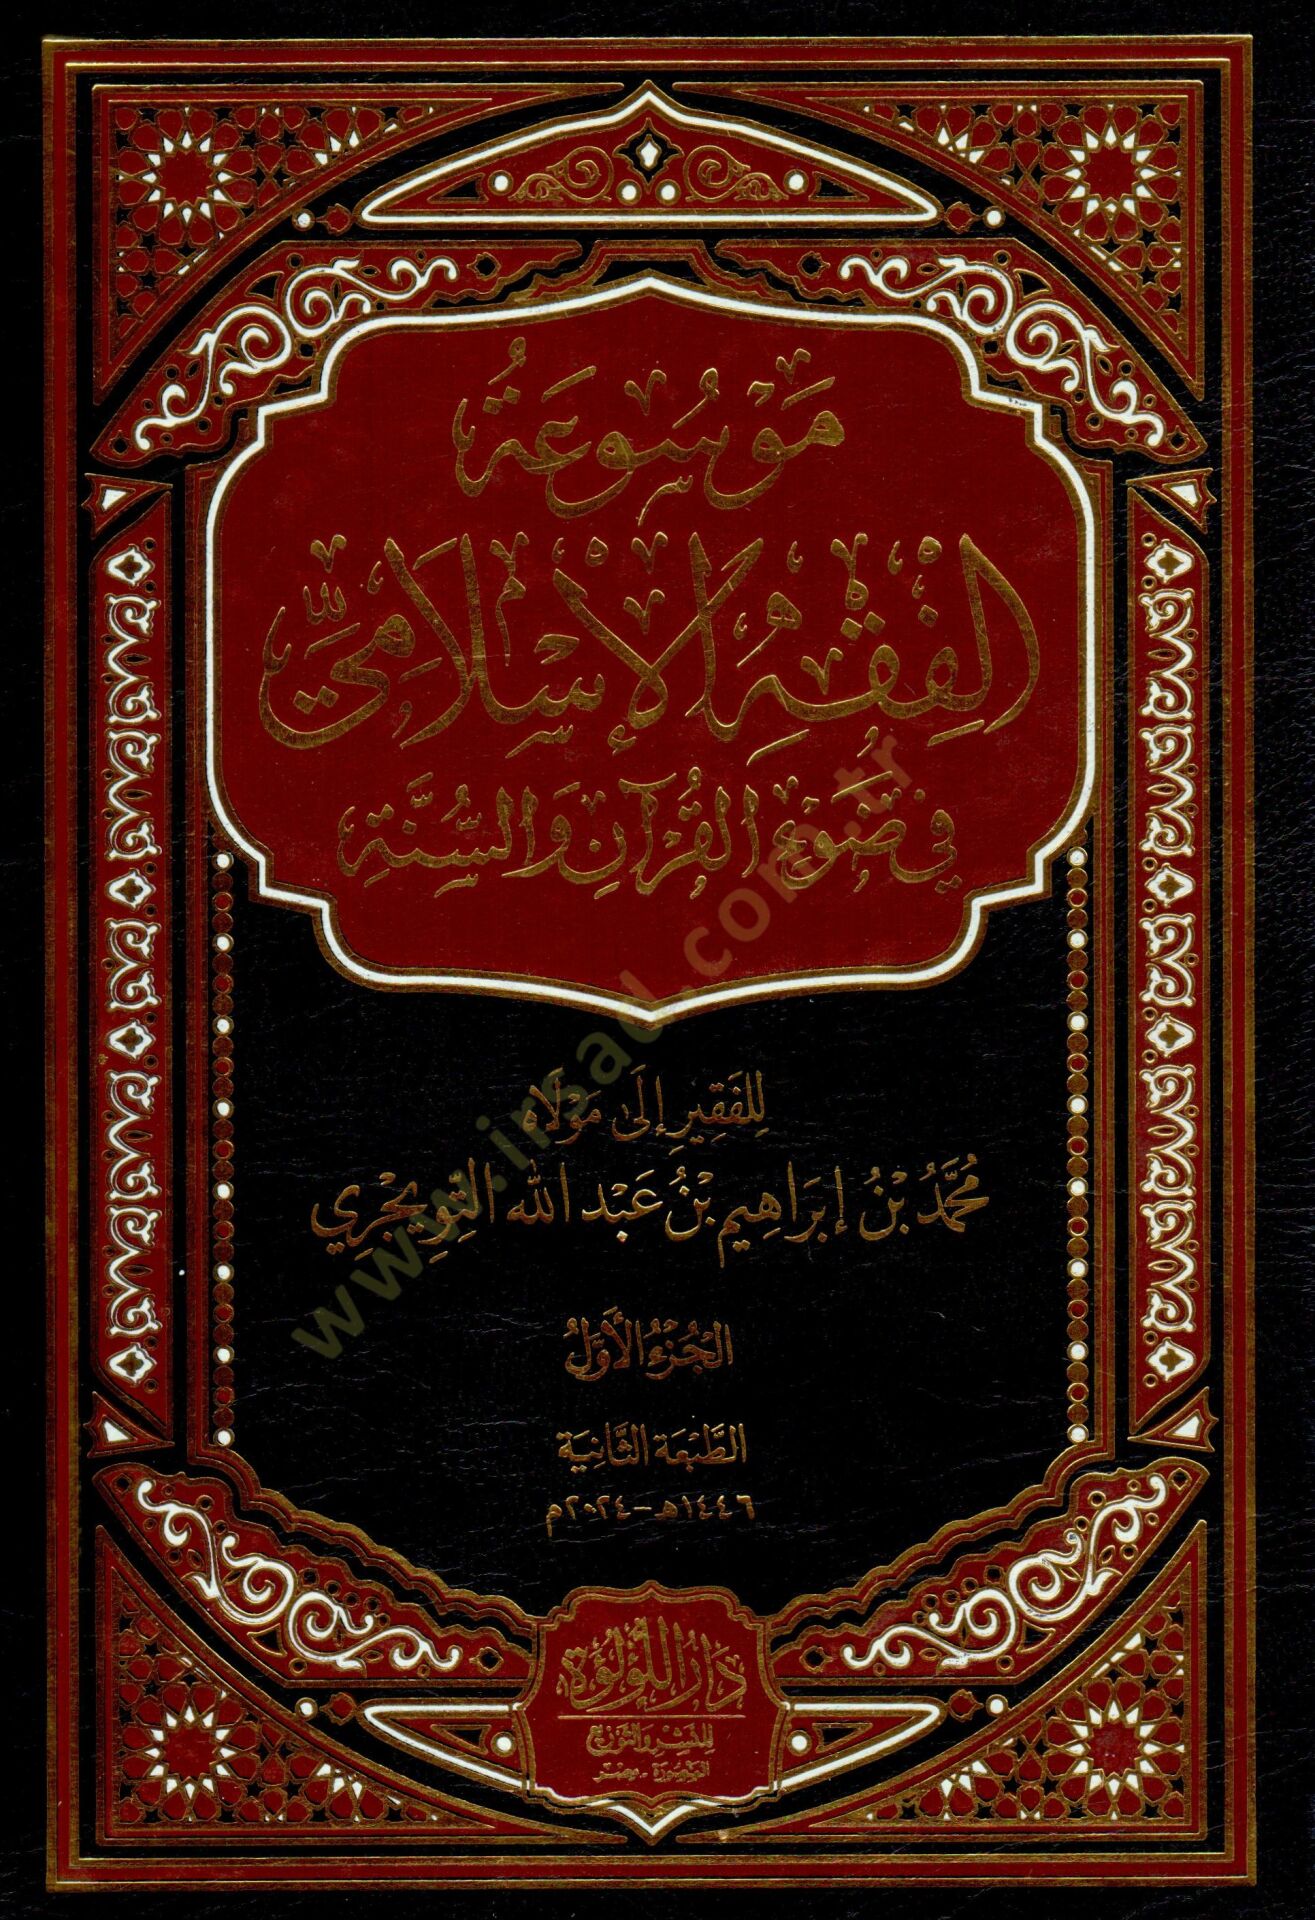 مَوْسُوعَةُ
الفِقْهِ الإِسْلَامِيِّ
فِي ضَوْءِ القُرْآنِ وَالسُّنَّةِ
لِلفَقِيرِ إِلَى مَوْلَاه
مُحَمَّدُ بْنُ إِبرَاهِيم بْنُ عَبْد الله التّوِيجْرِي
الجُزْءُ الأَوَّلُ
الطَّبْعَة الثَّانِيَة
١٤٤٦هـ-٢٠٢٤م
دَارُ اللُّؤْلُؤَة
للنَشْرِ والتَّوْزِيع
المنصورة - مصر
www.irsad.com.tr